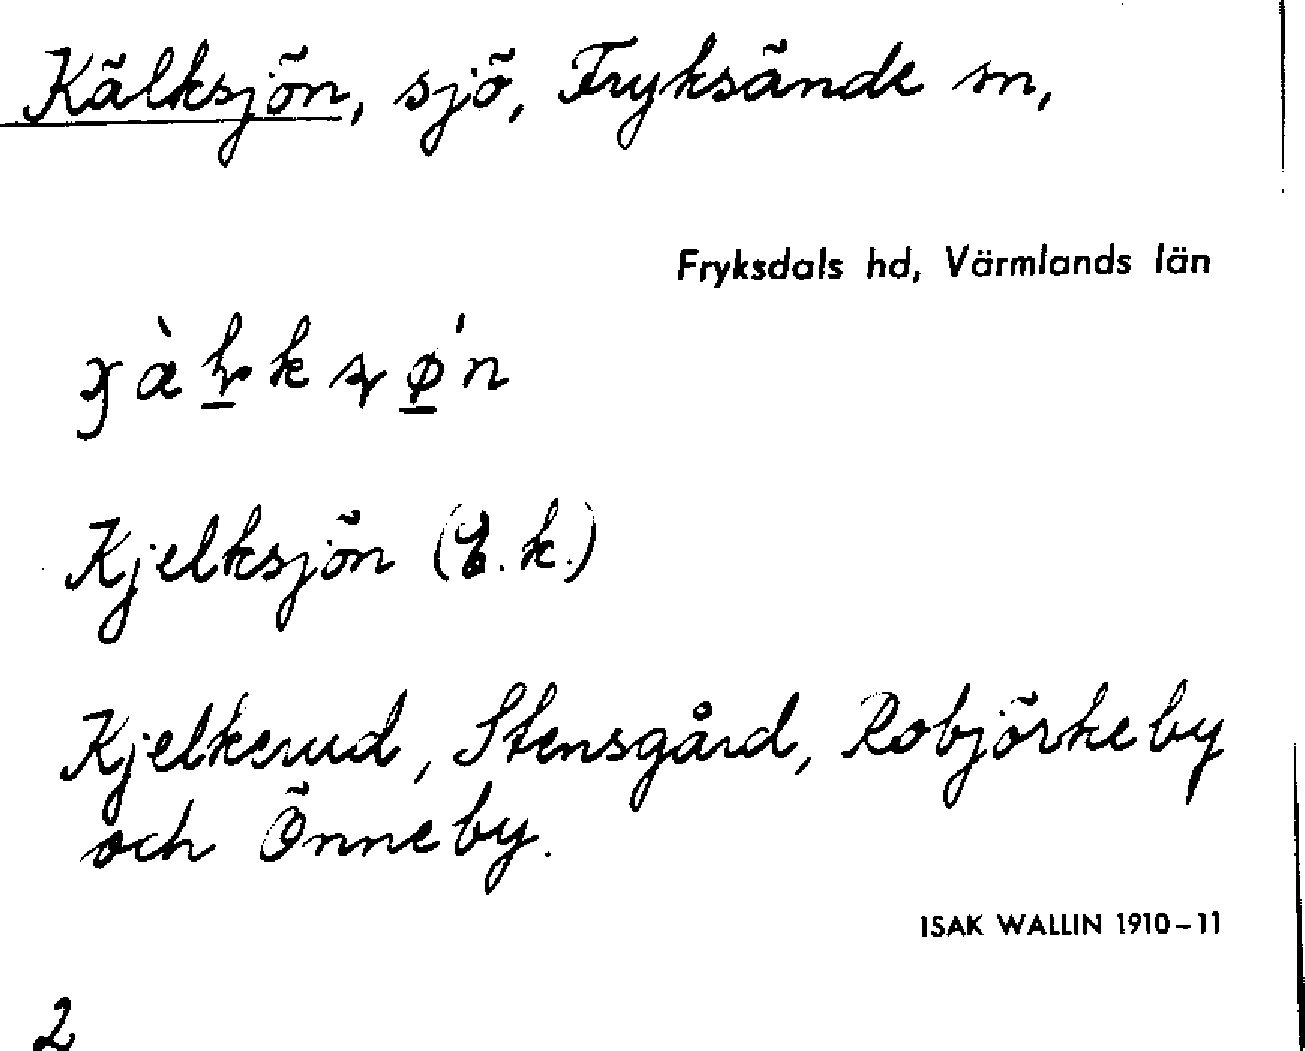 Kälksjön, sjö, Fryksände sn,
Fryksdals hd, Värmlands län
Kjelksjön (E.k.)
Kjelkerud, Stensgård, Robjörkeby
och Önneby.
ISAK WALLIN 1910–11
2